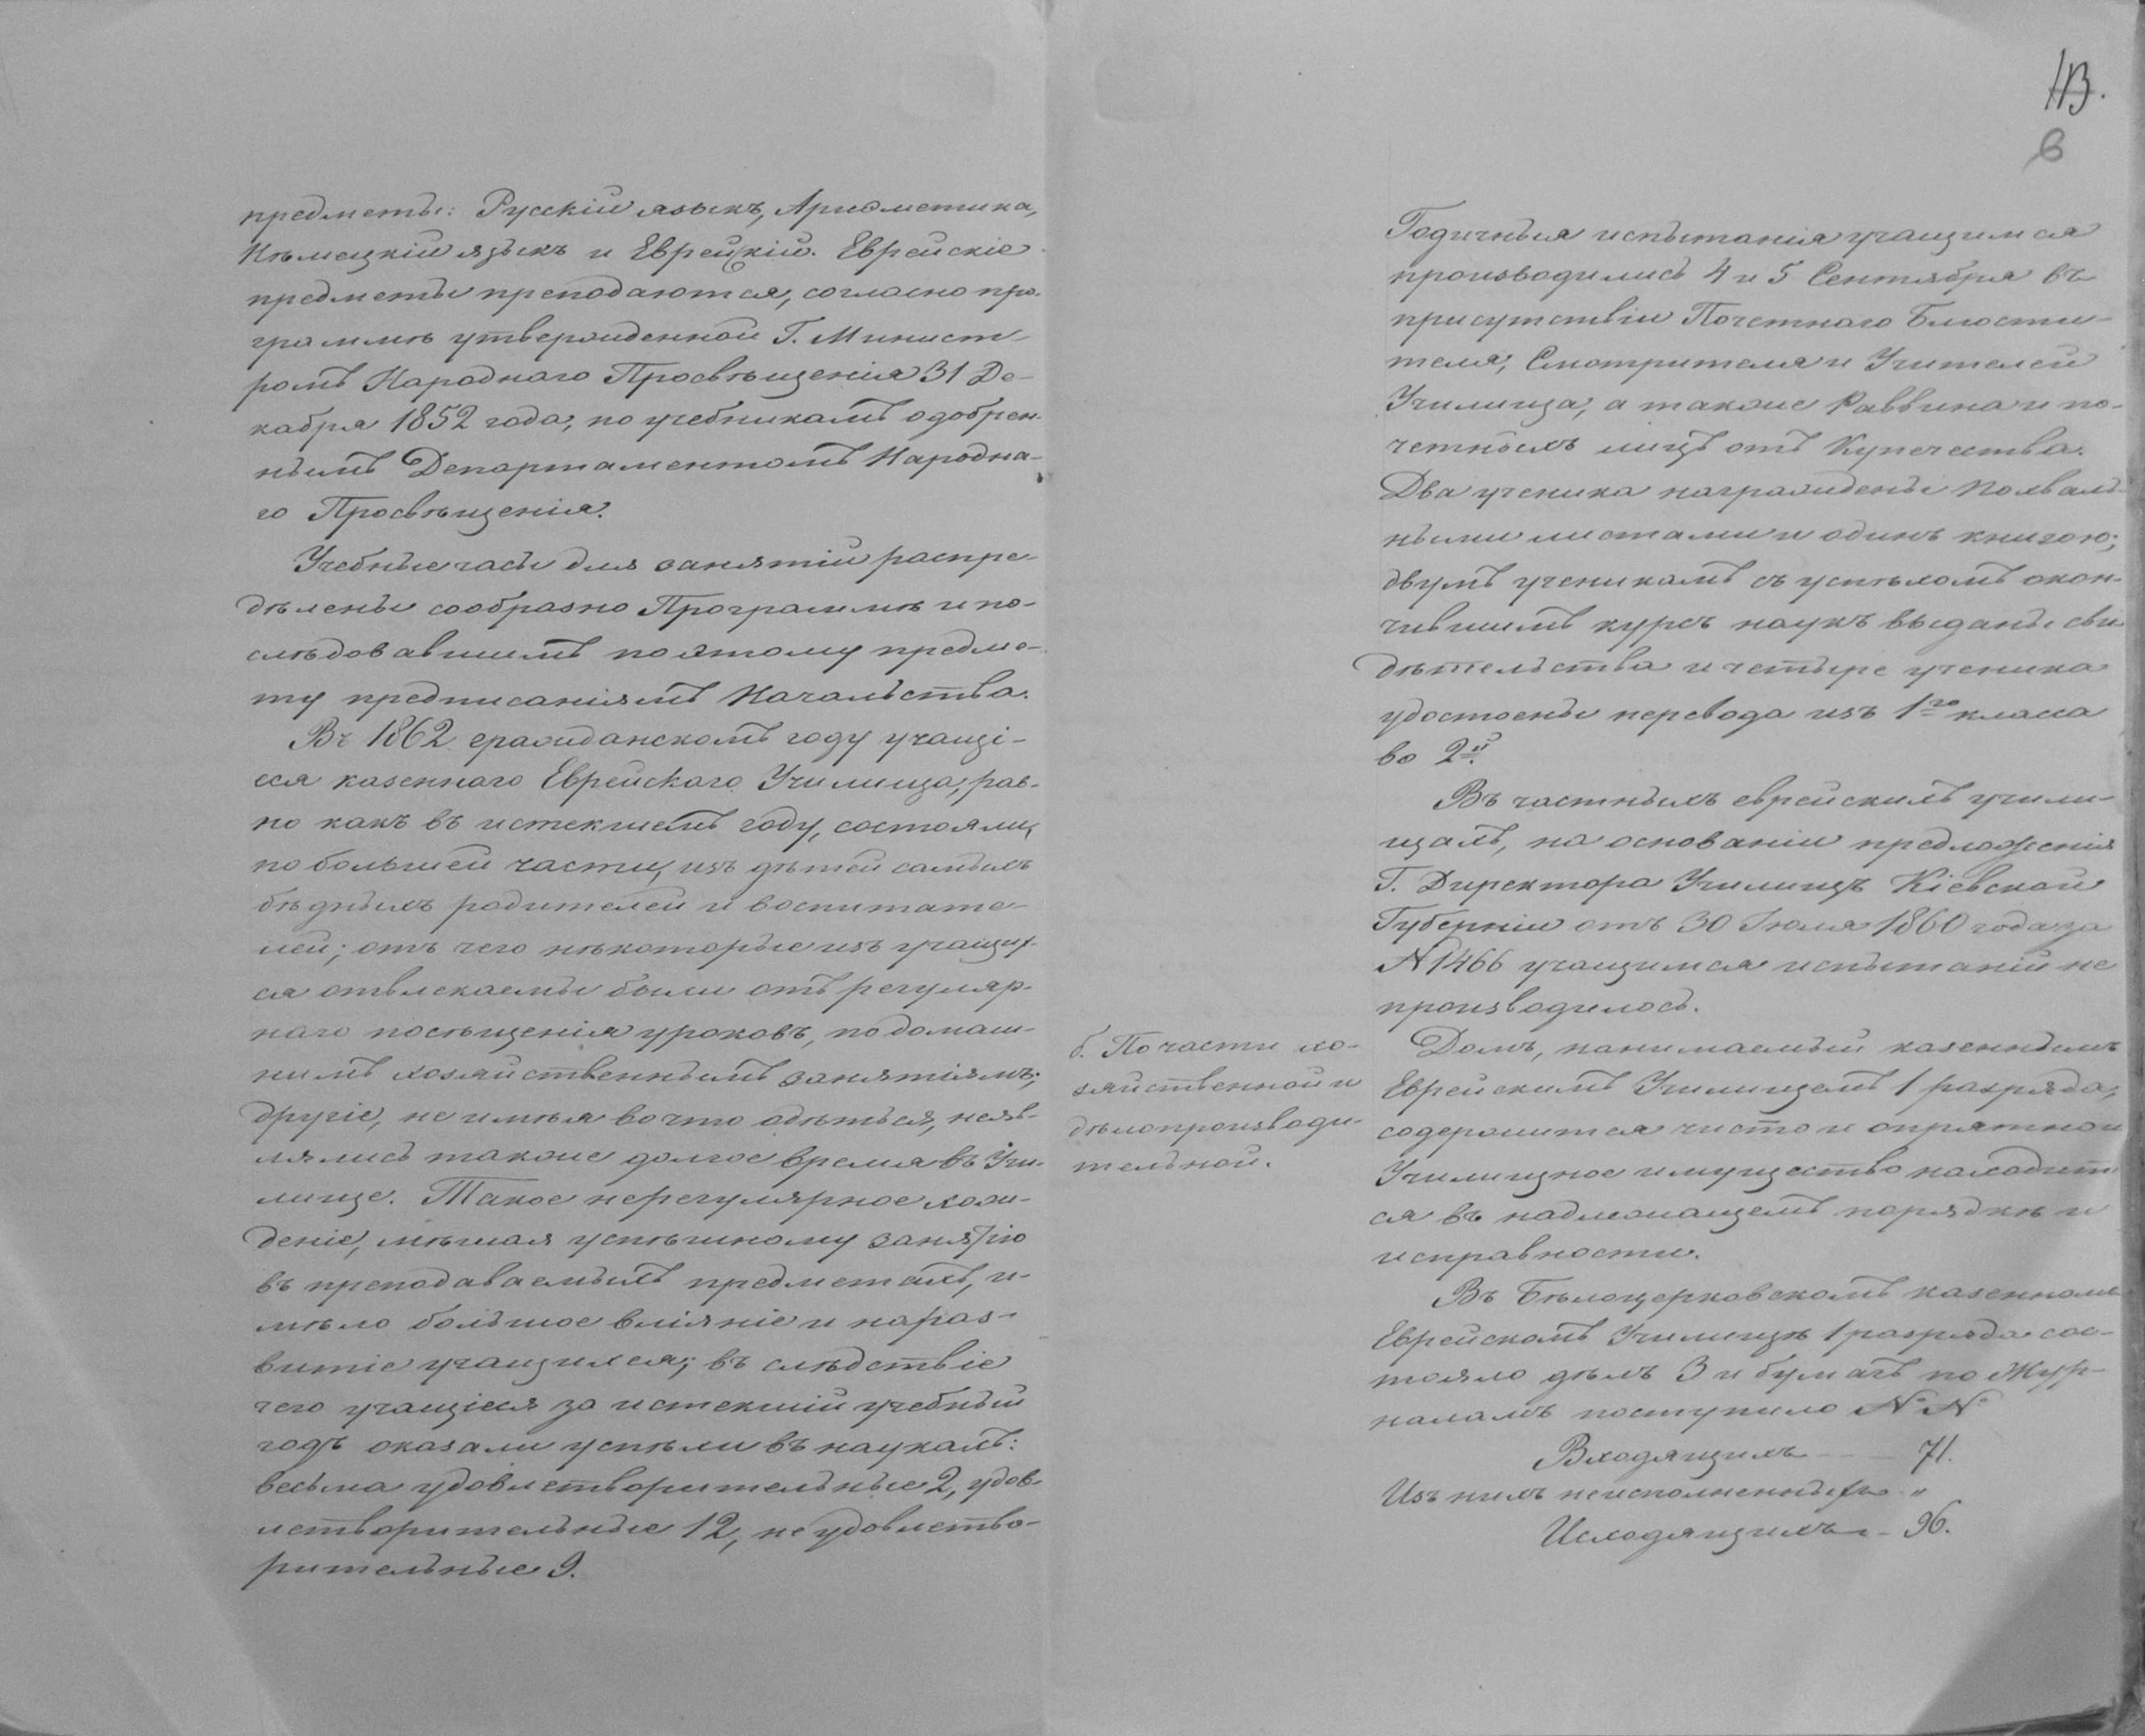 предметы: Русскій языкъ, Ариѳметика,
Нѣмецкій языкъ и Еврейскій. Еврейскіе
предметы преподаются, согласно про-
граммѣ утвержденной Г. Минист-
ромъ Народнаго Просвѣщенія 31 Де-
кабря 1852 года, по учебникамъ одобрен-
нымъ Департаментомъ Народна-
го Просвѣщенія.
Учебные часы для занятій распре-
дѣлены сообразно Программѣ и по-
слѣдовавшимъ по этому предме-
ту предписаніямъ Начальства.
Въ 1862 гражданскомъ году учащі-
еся казеннаго Еврейскаго Училища, рав-
но какъ въ истекшемъ году, состояли,
по большей части, изъ дѣтей самыхъ
бѣдныхъ родителей и воспитате-
лей; отъ чего нѣкоторые изъ учащих-
ся отвлекаемы были отъ регуляр-
наго посѣщенія уроковъ, по домаш-
нимъ хозяйственнымъ занятіямъ;
другіе, не имѣя во что одѣться, неяв-
лялись также долгое время въ Учи-
лище. Такое нерегулярное хож-
деніе, мѣшая успѣшному занятію
въ преподаваемыхъ предметахъ, и-
мѣло большое вліяніе и на раз-
витіе учащихся; въ слѣдствіе
чего учащіеся за истекшій учебный
годъ оказали успѣхи въ наукахъ:
весьма удовлетворительные 2, удов-
летворительные 12, неудовлетво-
рительные 9.
113.
6
Годичныя испытанія учащимся
производились 4 и 5 Сентября въ
присутствіи Почетнаго Блюсти-
теля, Смотрителя и Учителей
Училища, а также Раввина и по-
четныхъ лицъ отъ Купечества.
Два ученика награждены похваль-
ными листами и одинъ книгою;
двумъ ученикамъ съ успѣхомъ окон-
чившимъ курсъ наукъ выданы сви-
дѣтельства и четыре ученика
удостоены перевода изъ 1го класса
во 2й.
Въ частныхъ еврейскихъ учили-
щахъ, на основаніи предложенія
Г. Директора Училищъ Кіевской
Губерніи отъ 30 Іюля 1860 года за
№ 1466 учащимся испытаній не
производилось.
б. По части хо-
зяйственной и
дѣлопроизводи-
тельной.
Домъ, нанимаемый казеннымъ
Еврейскимъ Училищемъ 1 разряда,
содержится чисто и опрятно и
Училищное имущество находит-
ся въ надлежащемъ порядкѣ и
исправности.
Въ Бѣлоцерковскомъ казенномъ
Еврейскомъ Училищѣ 1 разряда сос-
тояло дѣлъ 3 и бумагъ по Жур-
наламъ поступило №№
Входящихъ - - 71.
Изъ нихъ неисполненныхъ "
Исходящихъ - 96.